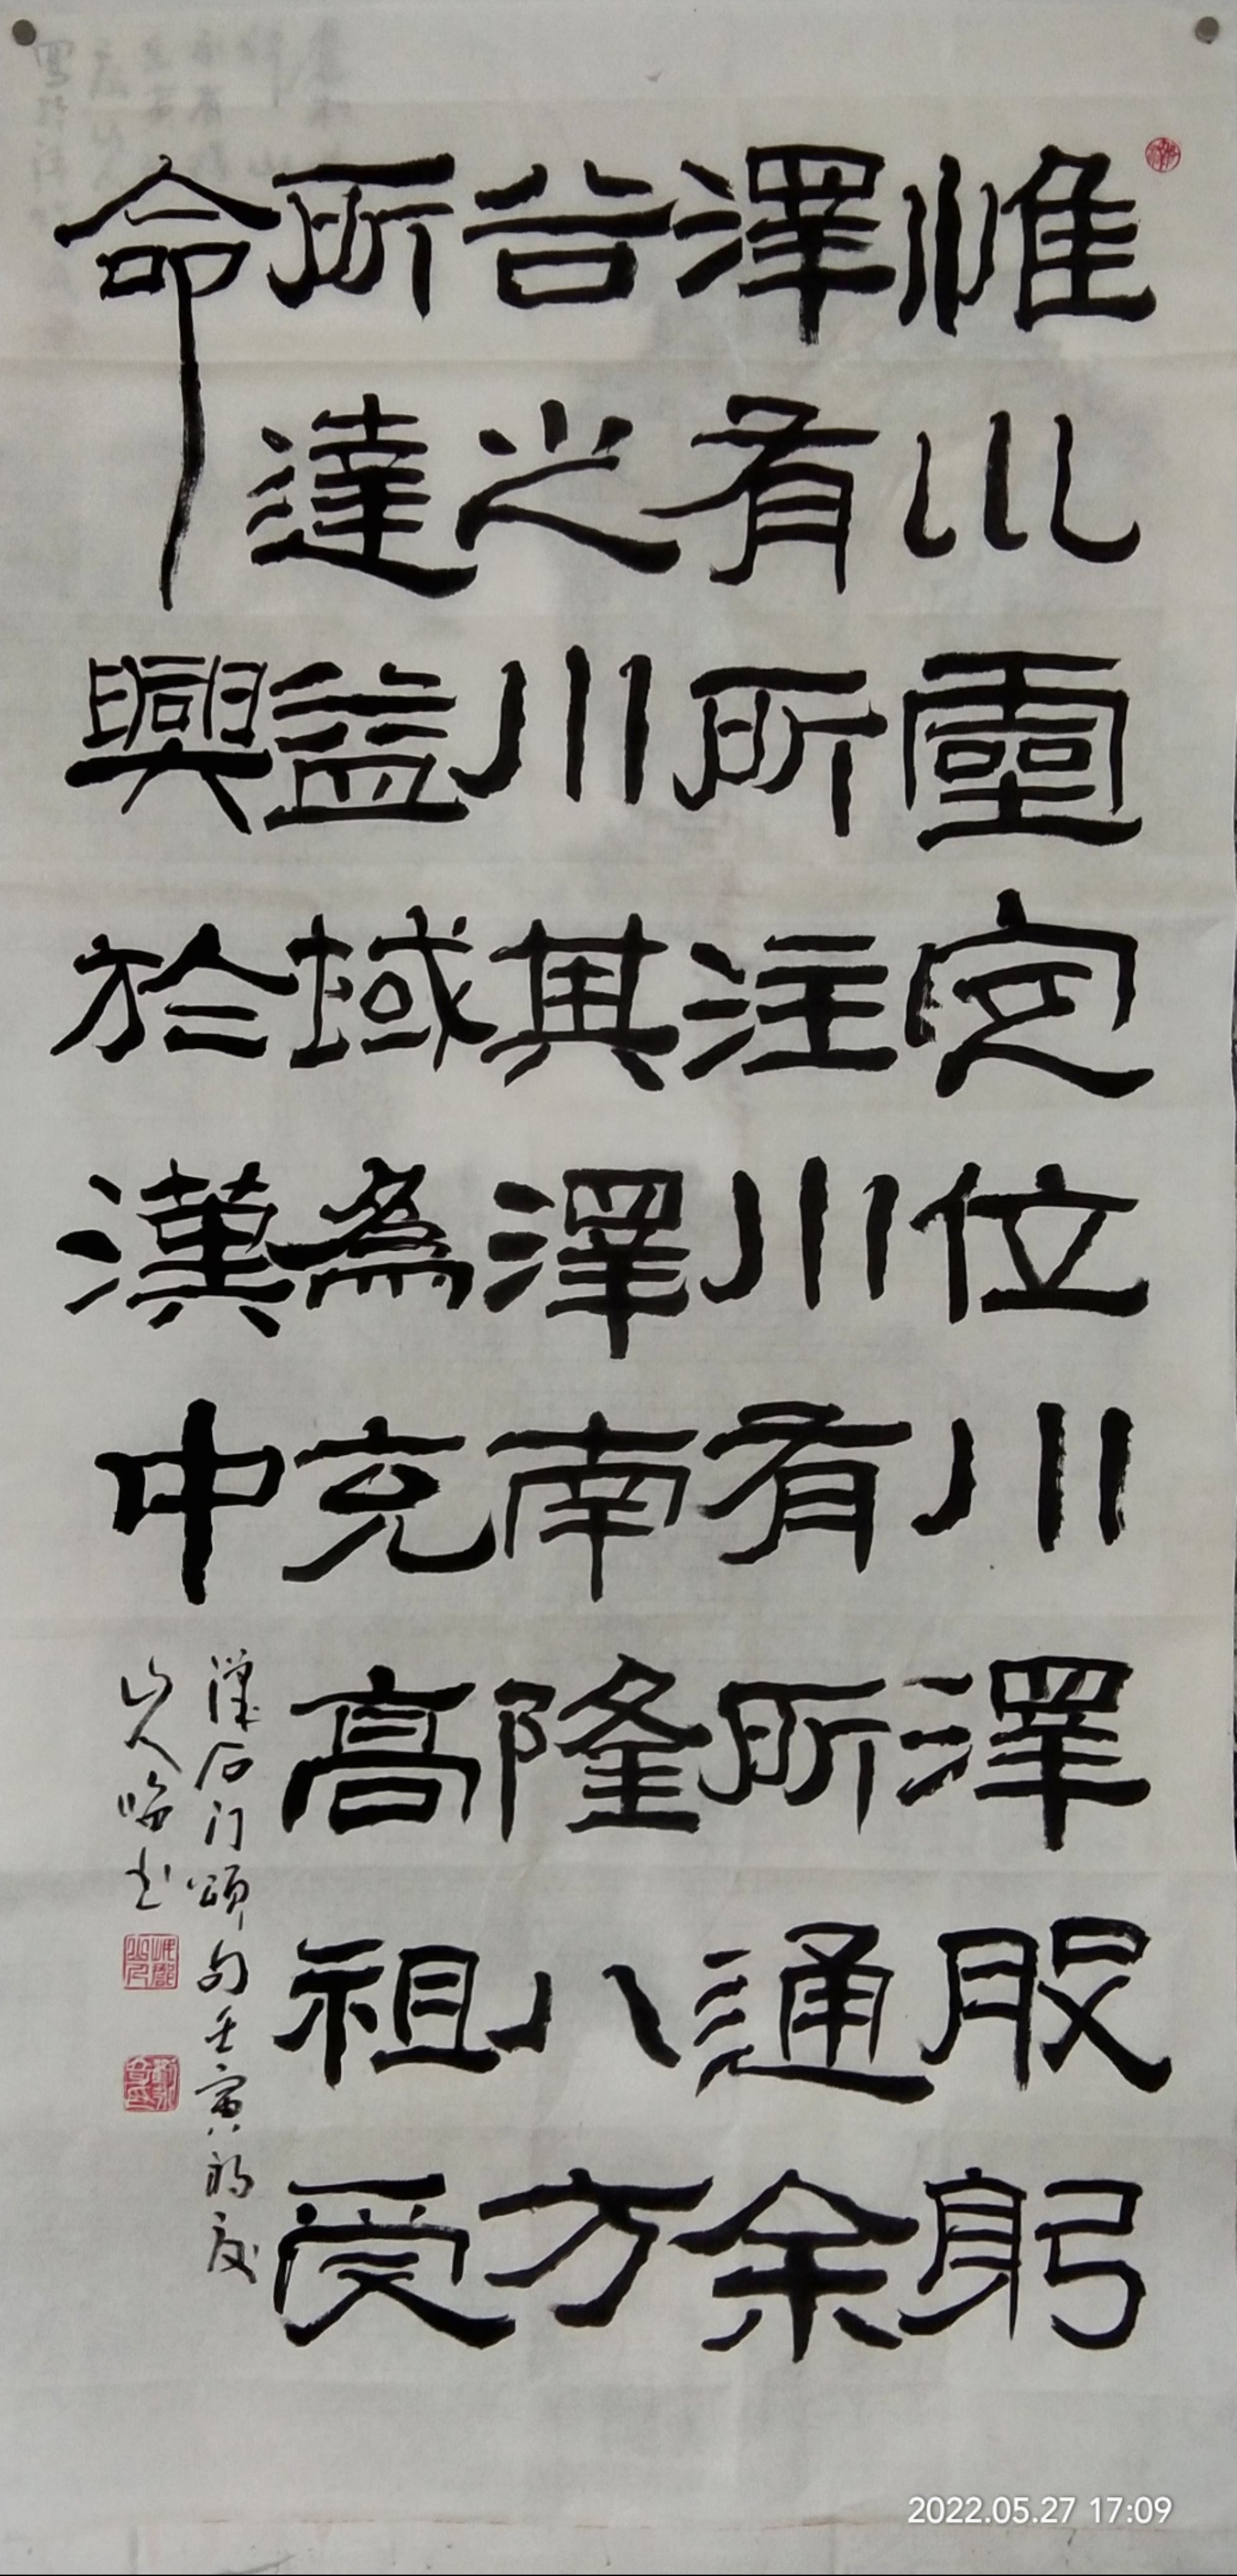 惟巛靈定位川澤股躬
澤有所注川有所通余
谷之川其澤南隆八方
所達益域為充高祖受
命興於漢中
漢石门頌句壬寅初夏
山人临书
2022.05.27 17:09